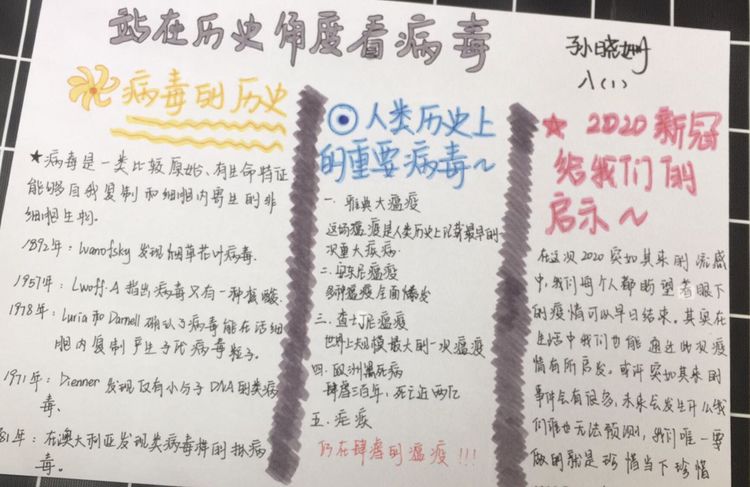 站在历史角度看病毒
孙晓
八(1)
病毒的历史
★病毒是一类比较原始、有生命特征
能够自我复制和细胞内寄生的非
细胞生物。
1892年：Ivanofsky 发现烟草花叶病毒.
1957年：Lwoff.A 指出病毒只有一种核酸.
1978年：Luria 和 Darnell 确认了病毒能在活细
胞内复制产生子代病毒粒子.
1971年：Dienner 发现仅有小分子DNA的类病
毒.
81年：在澳大利亚发现类病毒样的拟病
毒。
人类历史上
的重要病毒~
一. 雅典大瘟疫
这场瘟疫是人类历史上记载最早的
次重大疾病.
二.安东尼瘟疫
多种瘟疫全面爆发
三.查士丁尼瘟疫
世界上大规模最大的一次瘟疫
四.欧洲黑死病
肆虐三百年，死亡近两亿
五.疟疾
仍在肆虐的瘟疫!!!
★2020新冠
给我们的
启示~
在这次2020突如其来的流感
中，我们每个人都盼望着眼下
的疫情可以早日结束。其实在
生活中我们也能通过此次疫
情有所启发。或许突如其来的
事件会有很多，未来会发生什么我
们谁也无法预测，我们唯一要
做的就是珍惜当下珍惜